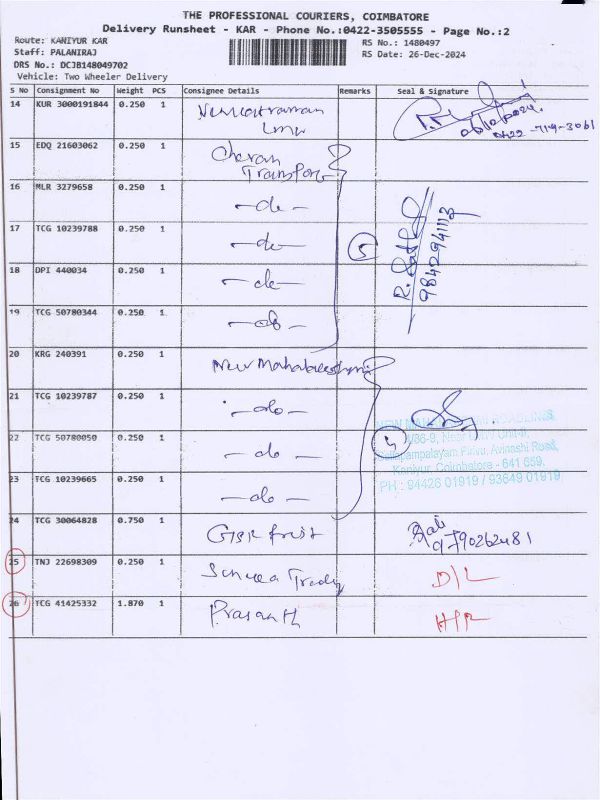 THE PROFESSIONAL COURIERS, COIMBATORE
Delivery Runsheet - KAR - Phone No.:0422-3505555 - Page No.:2
Route: KANIYUR KAR
RS No.: 1480497
Staff: PALANIRAJ
RS Date: 26-Dec-2024
DRS No.: DCJB148049702
Vehicle: Two Wheeler Delivery
S No Consignment No Weight PCS Consignee Details Remarks Seal & Signature
14 KUR 3000191844 0.250 1
15 EDQ 21603062 0.250 1 Cheran Transport
16 MLR 3279658 0.250 1 -do-
17 TCG 10239788 0.250 1 -do-
5
18 DPI 440034 0.250 1 -do-
9842941113
19 TCG 50780344 0.250 1 -do-
20 KRG 240391 0.250 1 New Mahalakshmi
21 TCG 10239787 0.250 1 -do-
22 TCG 50780050 0.250 1 -do-
4
Kaniyur, Coimbatore - 641 659.
PH : 94426 01919 / 93649 01919
23 TCG 10239665 0.250 1 -do-
24 TCG 30064828 0.750 1
9790262481
25 TNJ 22698309 0.250 1 D/L
26 TCG 41425332 1.870 1 Prasanth